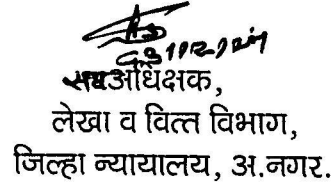 अधिक्षक,
लेखा व वित्त विभाग,
जिल्हा न्यायालय, अ.नगर.